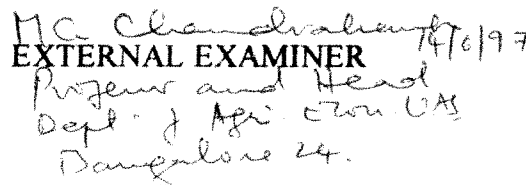 MG Chandrakanth 14/6/97
EXTERNAL EXAMINER
Professor and Head
Dept. of Agri. Econ. UAS
Bangalore 24.